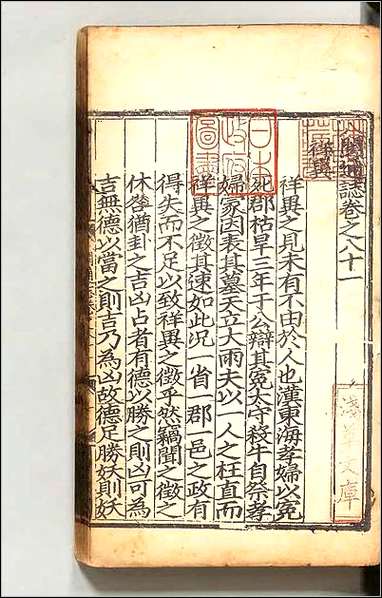 閩通誌卷之八十一
祥異
祥異之見未有不由於人也漢東海孝婦以冤
死郡枯旱三年于公辯其冤太守殺牛自祭孝
婦冢因表其墓天立大雨夫以一人之枉直而
祥異之徵其速如此况一省一郡一邑之政有
得失而不足以致祥異之徵乎然竊聞之徵之
休咎猶卦之吉凶占者有德以勝之則凶可為
吉無德以當之則吉乃為凶故德足勝妖則妖
日本
政府
圖書
淺草文庫